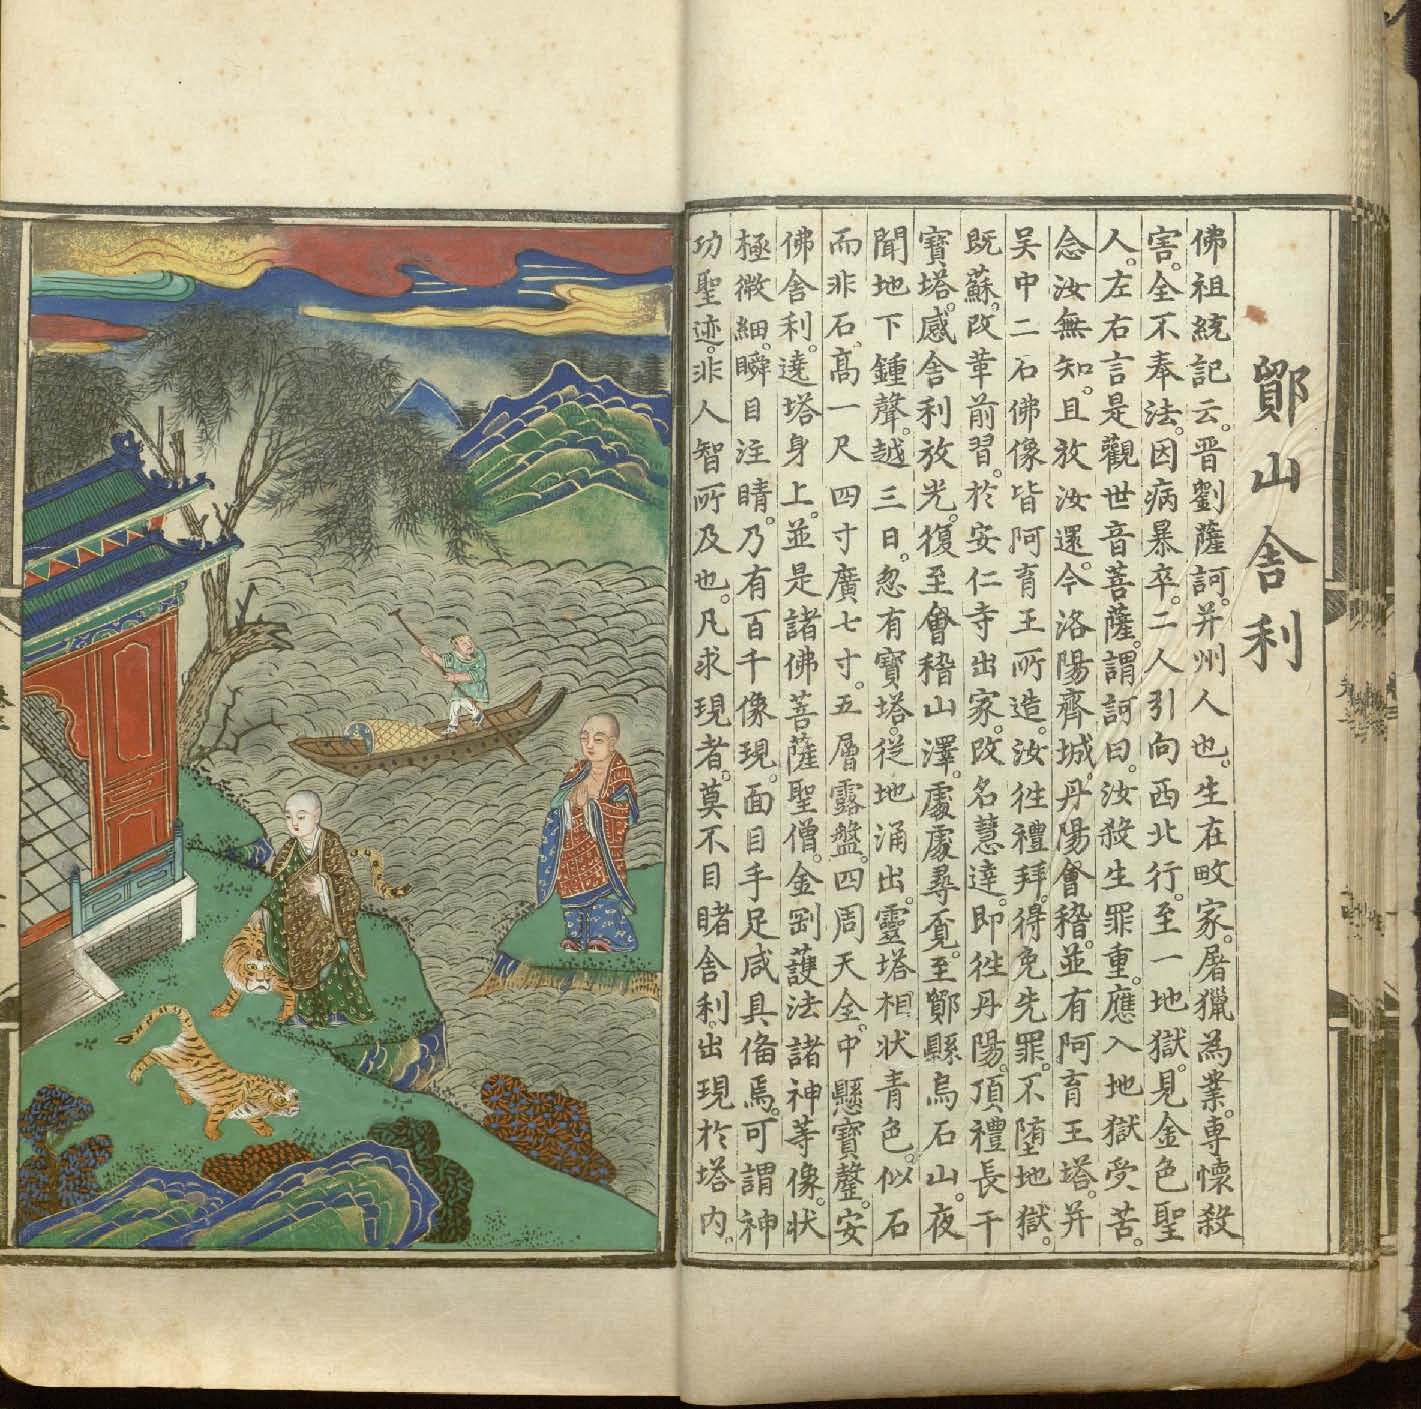 鄮山舍利
佛祖統記云。晋劉薩訶。并州人也。生在畋家。屠獵為業。專懷殺
害。全不奉法。因病暴卒。二人引向西北行。至一地獄。見金色聖
人。左右言是觀世音菩薩。謂訶曰。汝殺生罪重。應入地獄受苦。
念汝無知。且放汝還。今洛陽齊城。丹陽。會稽。並有阿育王塔。并
吴中二石佛像皆阿育王所造。汝徃禮拜。得免先罪。不墮地獄。
既蘇。改革前習。於安仁寺出家。改名慧達。即徃丹陽。頂禮長干
寶塔。感舍利放光。復至會稽山澤。處處尋覔。至鄮縣烏石山。夜
聞地下鍾聲。越三日。忽有寶塔。從地涌出。靈塔相狀青色。似石
而非石。高一尺四寸廣七寸。五層露盤。四周天全。中懸寶磬。安
佛舍利。遶塔身上。並是諸佛菩薩聖僧。金剛護法諸神等像。狀
極微細。瞬目注睛。乃有百千像現。面目手足咸具俻焉。可謂神
功聖迹。非人智所及也。凡求現者。莫不目睹舍利。出現於塔内。